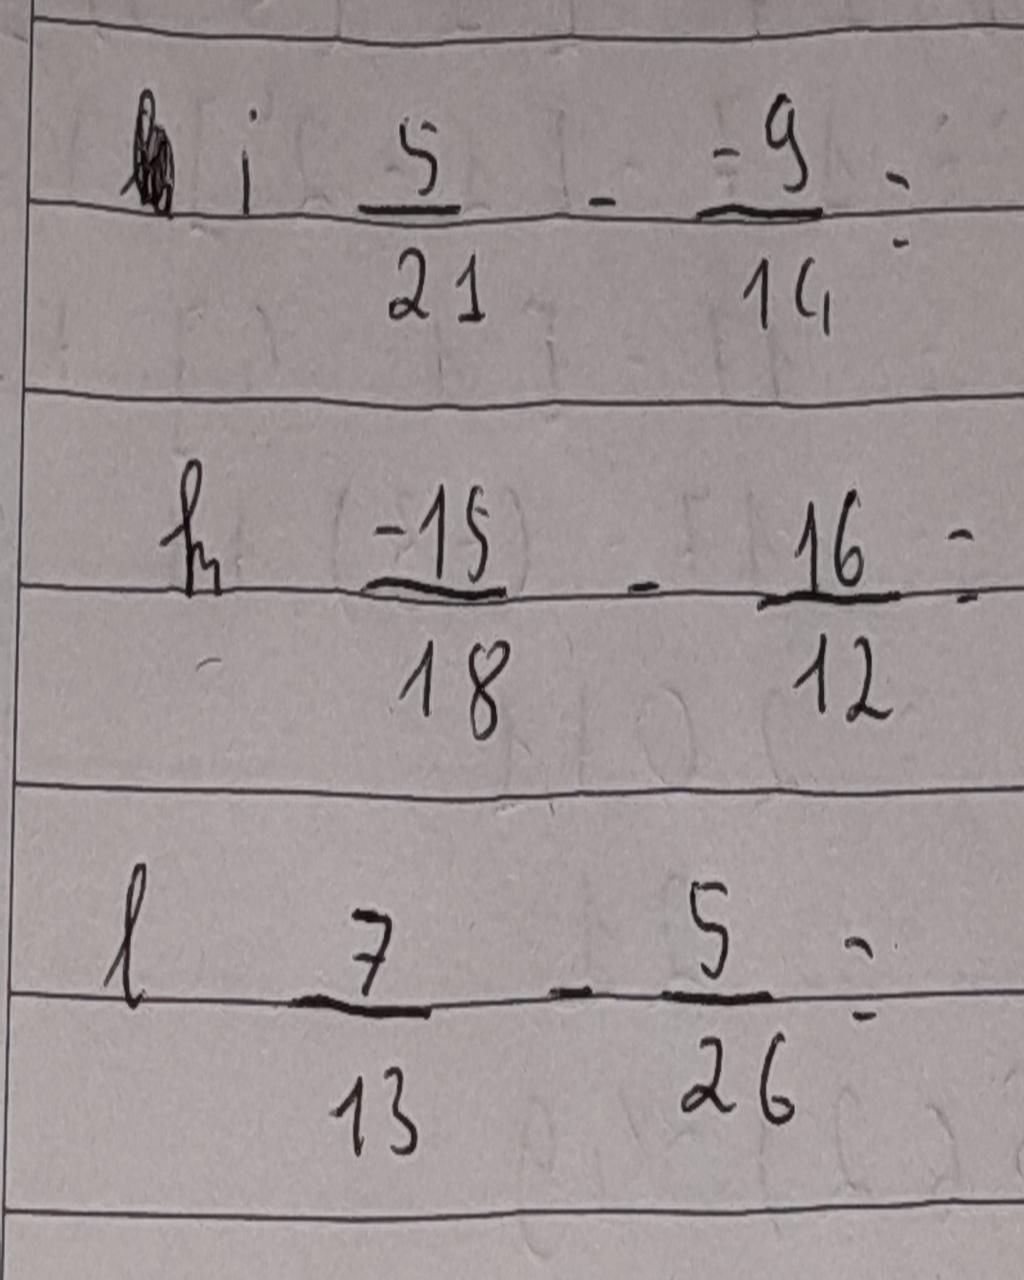 i 5/21 - -9/14 =
h -15/18 - 16/12 =
l 7/13 - 5/26 =